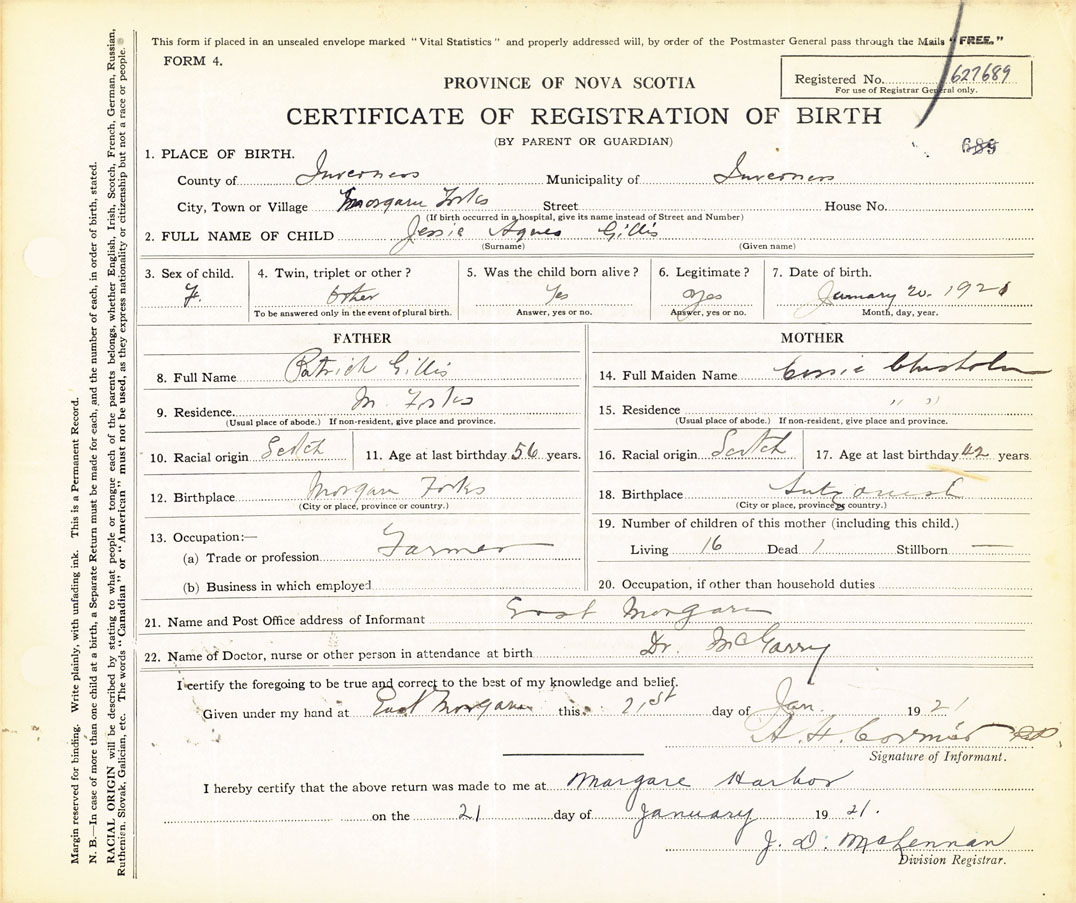 This form if placed in an unsealed envelope marked "Vital Statistics" and properly addressed will, by order of the Postmaster General pass through the Mails "FREE."
FORM 4.
PROVINCE OF NOVA SCOTIA
Registered No. 627689
For use of Registrar General only.
CERTIFICATE OF REGISTRATION OF BIRTH
(BY PARENT OR GUARDIAN)
689
1. PLACE OF BIRTH.
County of Inverness Municipality of Inverness
City, Town or Village Margaree Forks Street House No.
(If birth occurred in a hospital, give its name instead of Street and Number)
2. FULL NAME OF CHILD Jessie Agnes Gillis
(Surname) (Given name)
3. Sex of child. 4. Twin, triplet or other? 5. Was the child born alive? 6. Legitimate? 7. Date of birth.
F. Other Yes Yes January 20. 1921
To be answered only in the event of plural birth. Answer, yes or no. Answer, yes or no. Month, day, year.
FATHER
8. Full Name Patrick Gillis
9. Residence. M. Forks
(Usual place of abode.) If non-resident, give place and province.
10. Racial origin Scotch 11. Age at last birthday 56 years.
12. Birthplace Margaree Forks
(City or place, province or country.)
13. Occupation:—
(a) Trade or profession Farmer
(b) Business in which employed
MOTHER
14. Full Maiden Name Chisholm
15. Residence " "
(Usual place of abode.) If non-resident, give place and province.
16. Racial origin Scotch 17. Age at last birthday 42 years
18. Birthplace Antigonish
(City or place, province or country.)
19. Number of children of this mother (including this child.)
Living 16 Dead 1 Stillborn —
20. Occupation, if other than household duties
21. Name and Post Office address of Informant East Margaree
22. Name of Doctor, nurse or other person in attendance at birth Dr. McGarry
I certify the foregoing to be true and correct to the best of my knowledge and belief.
Given under my hand at East Margaree this 21st day of Jan. 1921
A. H. Cormier
Signature of Informant.
I hereby certify that the above return was made to me at Margaree Harbor
on the 21 day of January 1921.
J. D. McLennan
Division Registrar.
Margin reserved for binding. Write plainly, with unfading ink. This is a Permanent Record.
N. B.—In case of more than one child at a birth, a Separate Return must be made for each, and the number of each, in order of birth, stated.
RACIAL ORIGIN will be described by stating to what people or tongue each of the parents belongs, whether English, Irish, Scotch, French, German, Russian,
Ruthenien, Slovak, Galician, etc. The words "Canadian" or "American" must not be used, as they express nationality or citizenship but not a race or people.